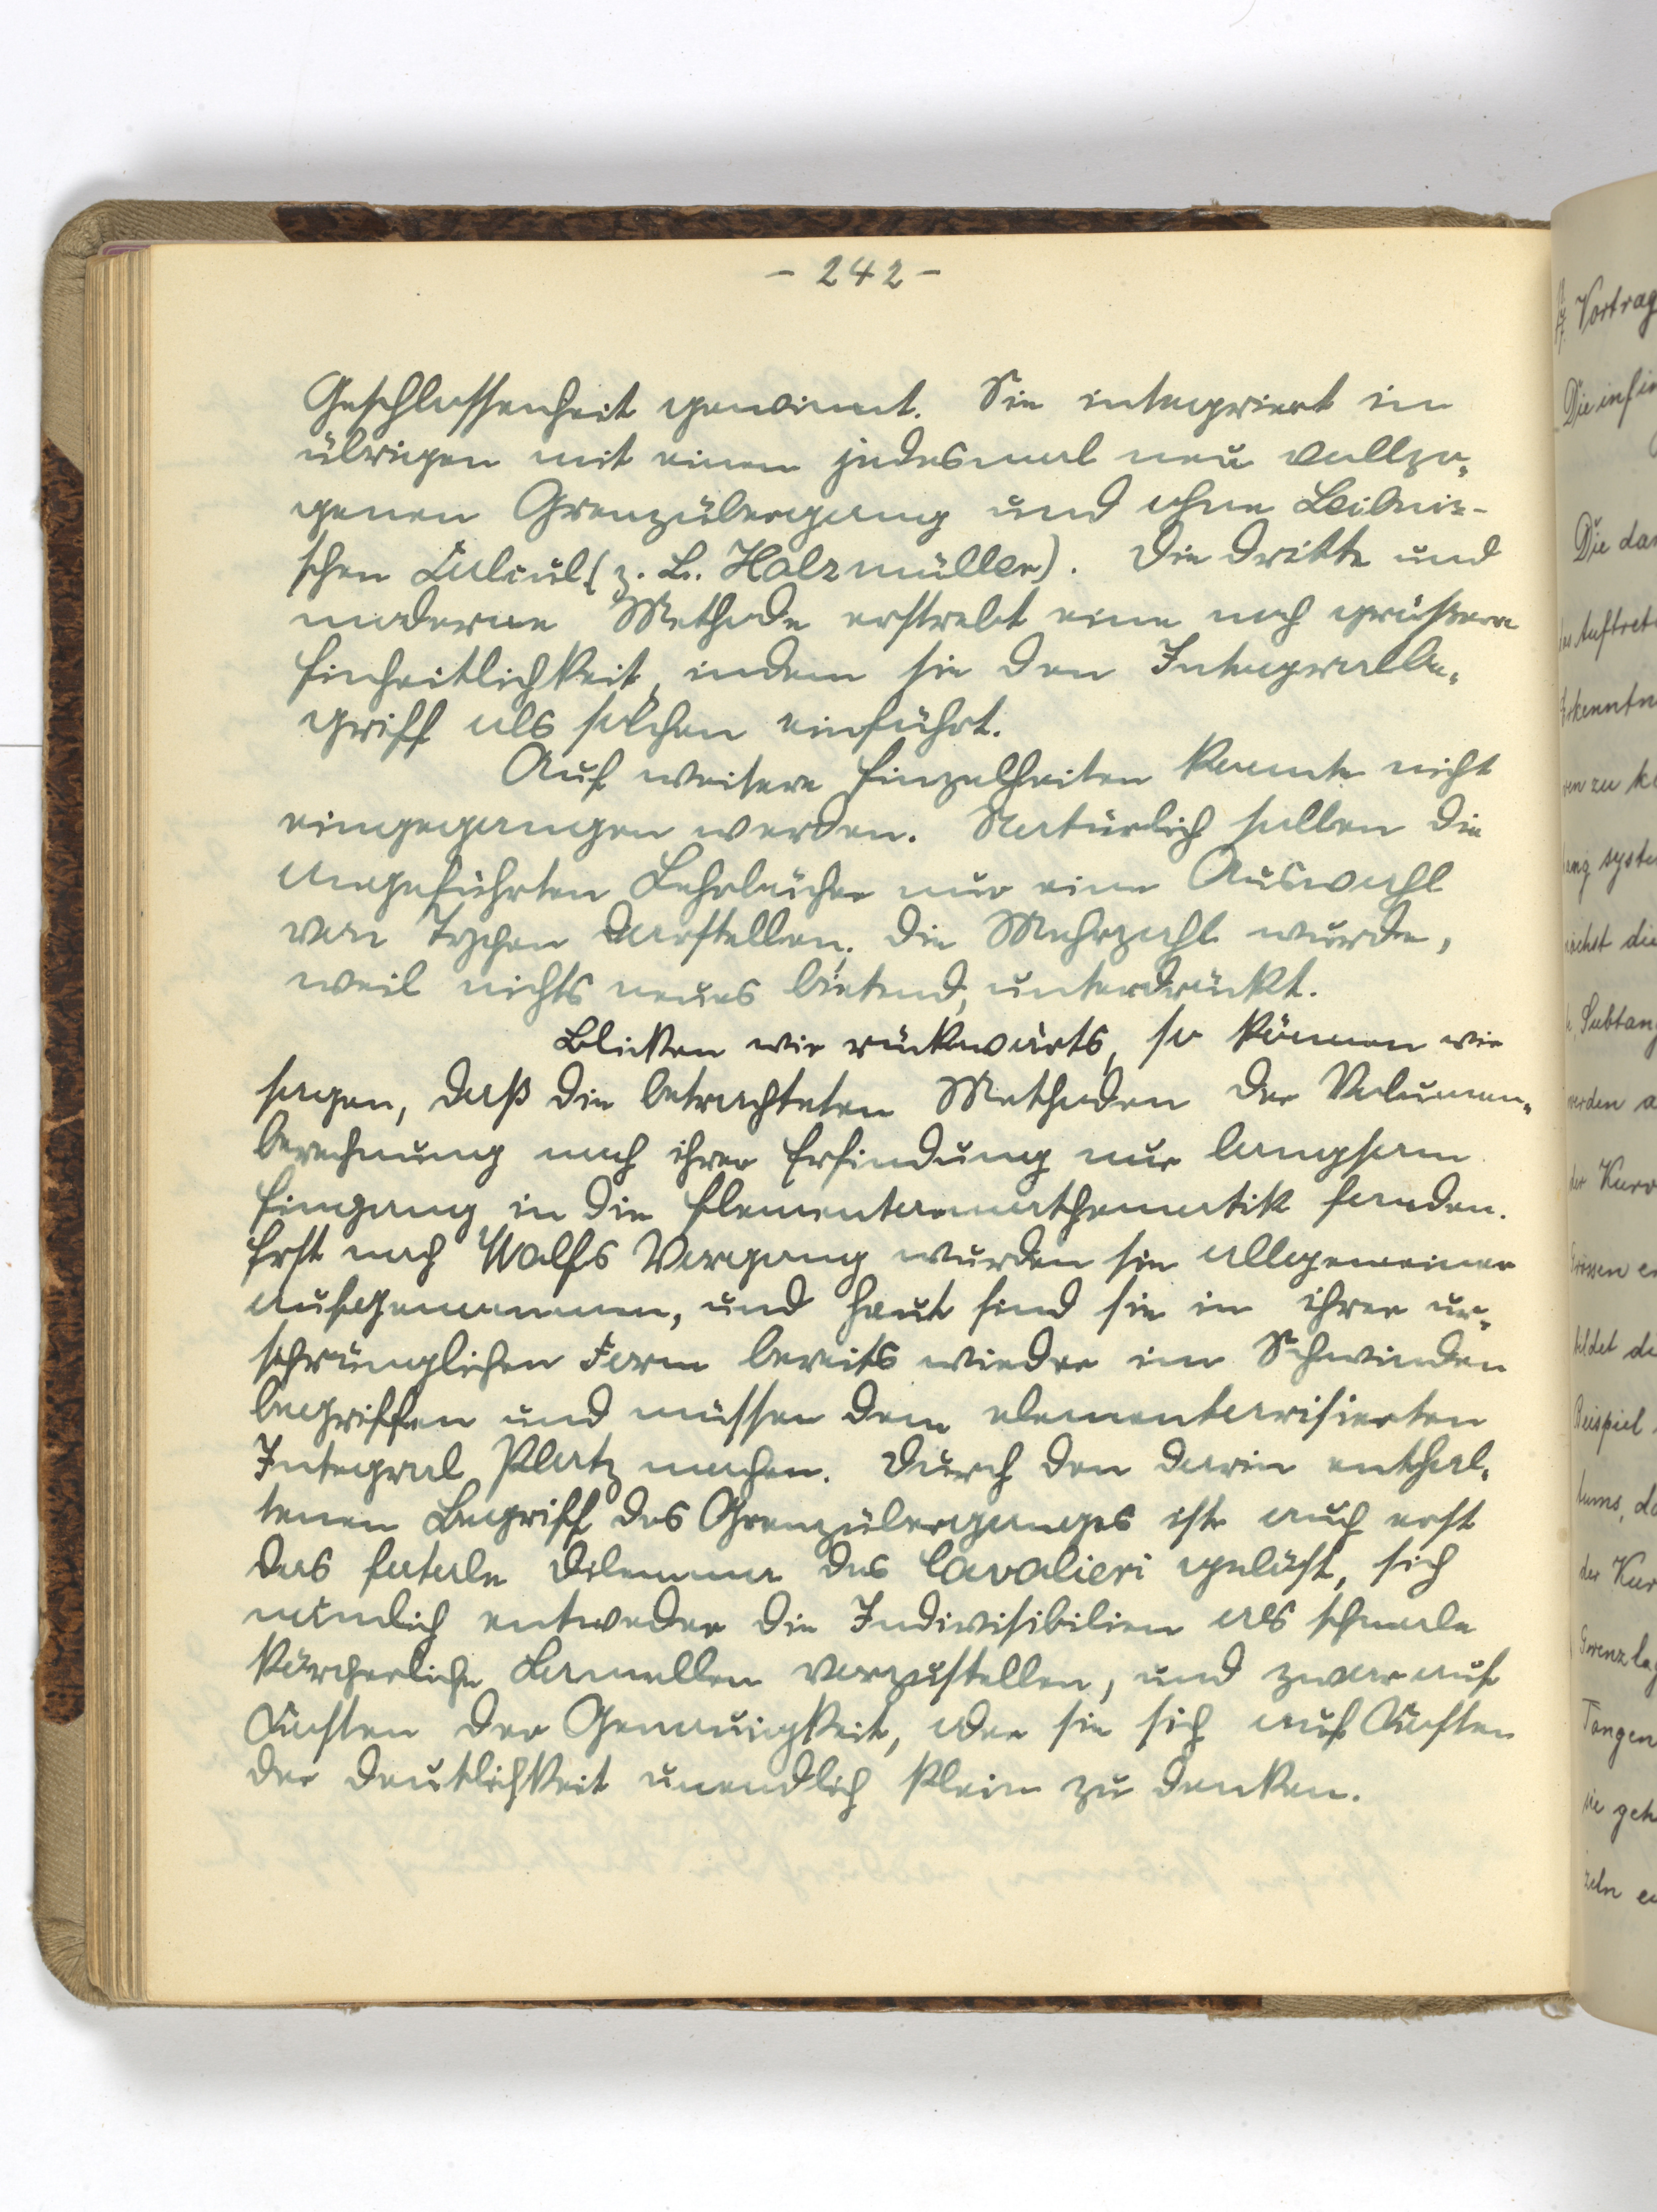 - 242 -
Geschlossenheit gewinnt. Sie integriert im
übrigen mit einem jedesmal neu vollzo-
genen Grenzübergang und ohne Leibniz-
schen Calcul (z. B. Holzmüller). Die dritte und
moderne Methode erstrebt eine noch grössere
Einheitlichkeit, indem sie den Integralbe-
griff als solchen einführt.
Auf weitere Einzelheiten konnte nicht
eingegangen werden. Natürlich sollen die
angeführten Lehrbücher nur eine Auswahl
von Typen darstellen; die Mehrzahl wurde,
weil nichts neues bietend, unterdrückt.
Blicken wir rückwärts, so können wir
sagen, daß die betrachteten Methoden der Volumen-
berechnung nach ihrer Erfindung nur langsam
Eingang in die Elementarmathematik fanden.
Erst nach Wolfs Vorgang wurden sie allgemeiner
aufgenommen, und heut sind sie in ihrer ur-
sprünglichen Form bereits wieder im Schwinden
begriffen und müssen dem elementarisierten
Integral Platz machen. Durch den darin enthal-
tenen Begriff des Grenzüberganges ist auch erst
das fatale Dilemma des Cavalieri gelöst, sich
nämlich entweder die Indivisibilien als schmale
körperliche Lamellen vorzustellen, und zwar auf
Kosten der Genauigkeit, oder sie sich auf Kosten
der Deutlichkeit unendlich klein zu denken.
Vortrag
Die infin
Die dar
Auftret
Erkenntn
ren zu k
ang syste
ächst die
Subtang
werden a
der Kurv
Grössen e
bildet d
Beispiel
tums, d
der Kur
Grenzlag
Tangen
sie geh
zeln e